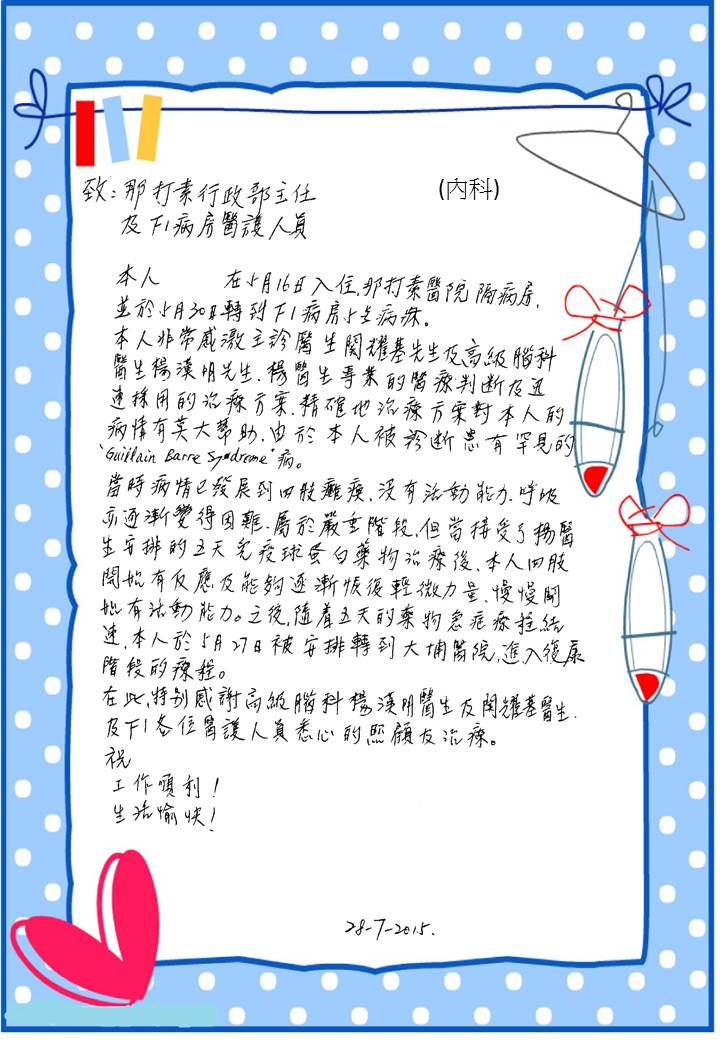 致：那打素行政部主任 (內科)
及F1病房醫護人員
本人 在5月16日入住,那打素醫院隔病房,
並於5月30日轉到F1病房5號病牀。
本人非常感激主診醫生関耀基先生及高級腦科
醫生楊漢明先生.楊醫生專業的醫療判斷及迅
速採用的治療方案.精確地治療方案對本人的
病情有莫大幫助.由於本人被診斷患有罕見的
"Guillain Barre Syndrome"病。
當時病情已發展到四肢癱瘓,沒有活動能力.呼吸
亦逐漸變得困難.屬於嚴重階段,但當接受了楊醫
生安排的五天免疫球蛋白藥物治療後.本人四肢
開始有反應及能夠逐漸恢復輕微力量.慢慢開
始有活動能力。之後,隨着五天的藥物急症療程結
速.本人於5月27日被安排轉到大埔醫院,進入復康
階段的療程。
在此,特別感謝高級腦科楊漢明醫生及関耀基醫生.
及F1各位醫護人員悉心的照顧及治療。
祝
工作順利!
生活愉快!
28-7-2015.